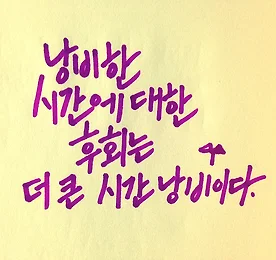 낭비한
시간에 대한
후회는
더 큰 시간 낭비이다.